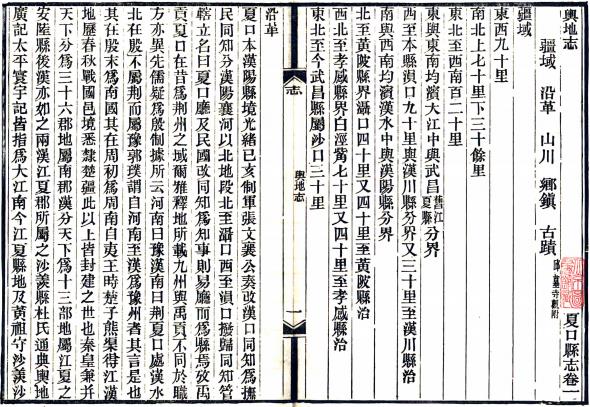 輿地志 夏口縣志卷一
疆域 沿革 山川 鄉鎮 古蹟 邱墓寺觀附
疆域
東西九十里
南北上七十里下三十餘里
東北至西南百二十里
東與東南均濱大江中與武昌舊江夏縣分界
南與西南均濱漢水中與漢陽縣分界
西至本縣溳口九十里與漢川縣分界又三十里至漢川縣治
北至黃陂縣界灄口四十里又四十里至黃陂縣治
西北至孝感縣界白涇觜七十里又四十里至孝感縣治
東北至今武昌縣屬沙口三十里
志 輿地志 一
沿革
夏口本漢陽縣境光緒己亥制軍張文襄公奏改漢口同知為撫
民同知分漢陽襄河以北地段北至灄口西至溳口撥歸同知管
轄立名曰夏口廳及民國改同知為知事則易廳而為縣焉攷禹
貢夏口在昔為荊州之域爾雅釋地所載九州與禹貢不同於職
方亦異先儒疑為殷制據所云河南曰豫漢南曰荊夏口處漢水
北在殷不屬荊而屬豫郭璞謂自河南至漢為豫州者其言是也
其在殷末為南國其在周初為周南自夷王時楚子熊渠得江漢
地歷春秋戰國邑境悉隸楚疆此以上皆封建之世也秦皇兼并
天下分為三十六郡地屬南郡漢分天下為十三部地屬江夏之
安陸縣後漢亦如之兩漢江夏郡所屬之沙羨縣杜氏通典輿地
廣記太平寰宇記皆指為大江南今江夏縣地及黃祖守沙羨沙